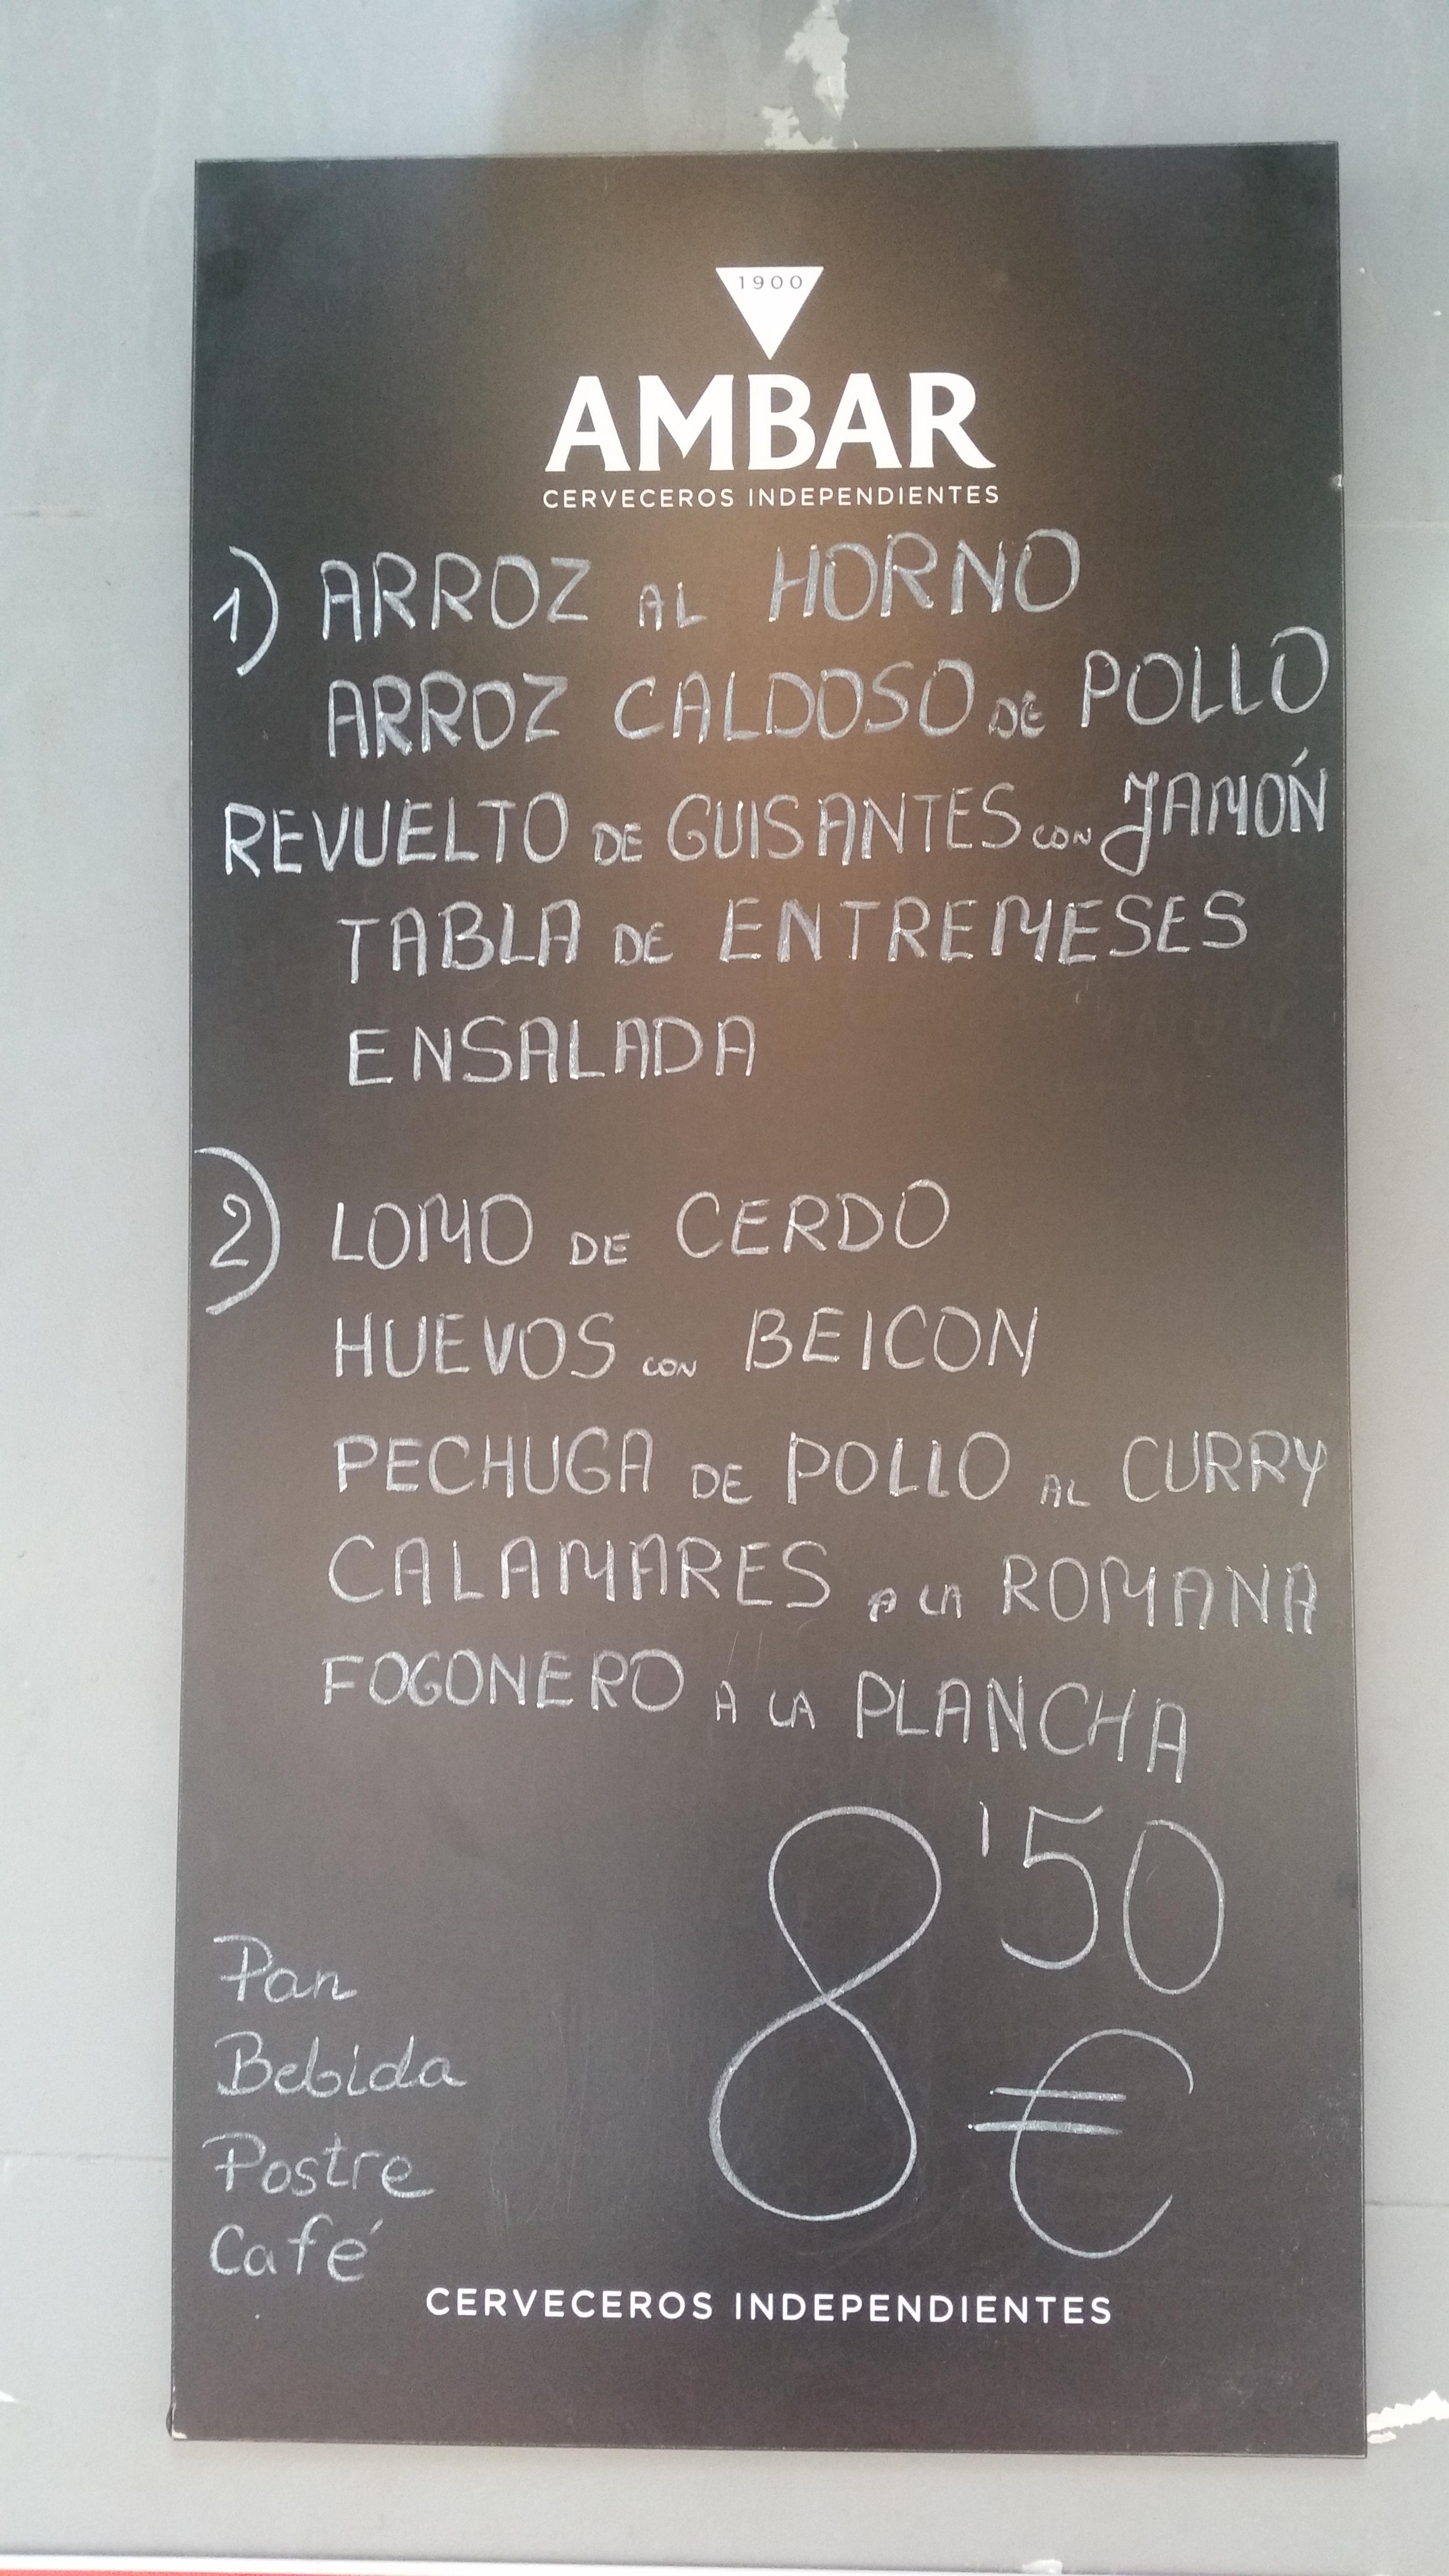 1900
AMBAR
CERVECEROS INDEPENDIENTES
1) ARROZ AL HORNO
ARROZ CALDOSO DE POLLO
REVUELTO DE GUISANTES CON JAMÓN
TABLA DE ENTREMESES
ENSALADA
2) LOMO DE CERDO
HUEVOS CON BEICON
PECHUGA DE POLLO AL CURRY
CALAMARES A LA ROMANA
FOGONERO A LA PLANCHA
8'50 €
Pan
Bebida
Postre
Café
CERVECEROS INDEPENDIENTES